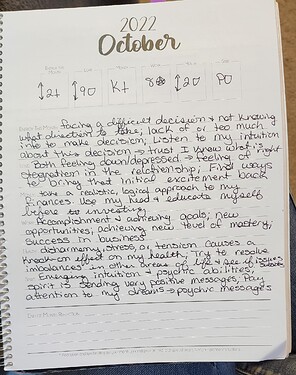 2022
October
↕2+ ↕90 K+ 8⊕ ↕20 PO
Facing a difficult decision + not knowing
what direction to take; lack of or too much
info to make decision; Listen to my intuition
about this decision → trust I know what is right
Both feeling down/depressed → feeling of
stagnation in the relationship; Find ways
to bring that initial excitement back
a realistic, logical approach to my
finances. Use my head + educate myself
before investing
Accomplishment + achieving goals; new
opportunities; achieving new level of mastery;
success in business
disharmony, stress, or tension causes a
knock-on effect on my health; Try to resolve
imbalances in other areas of life + see if issues
Emerging intuition + psychic abilities;
spirit is sending very positive messages; Pay
attention to my dreams → psychic messages